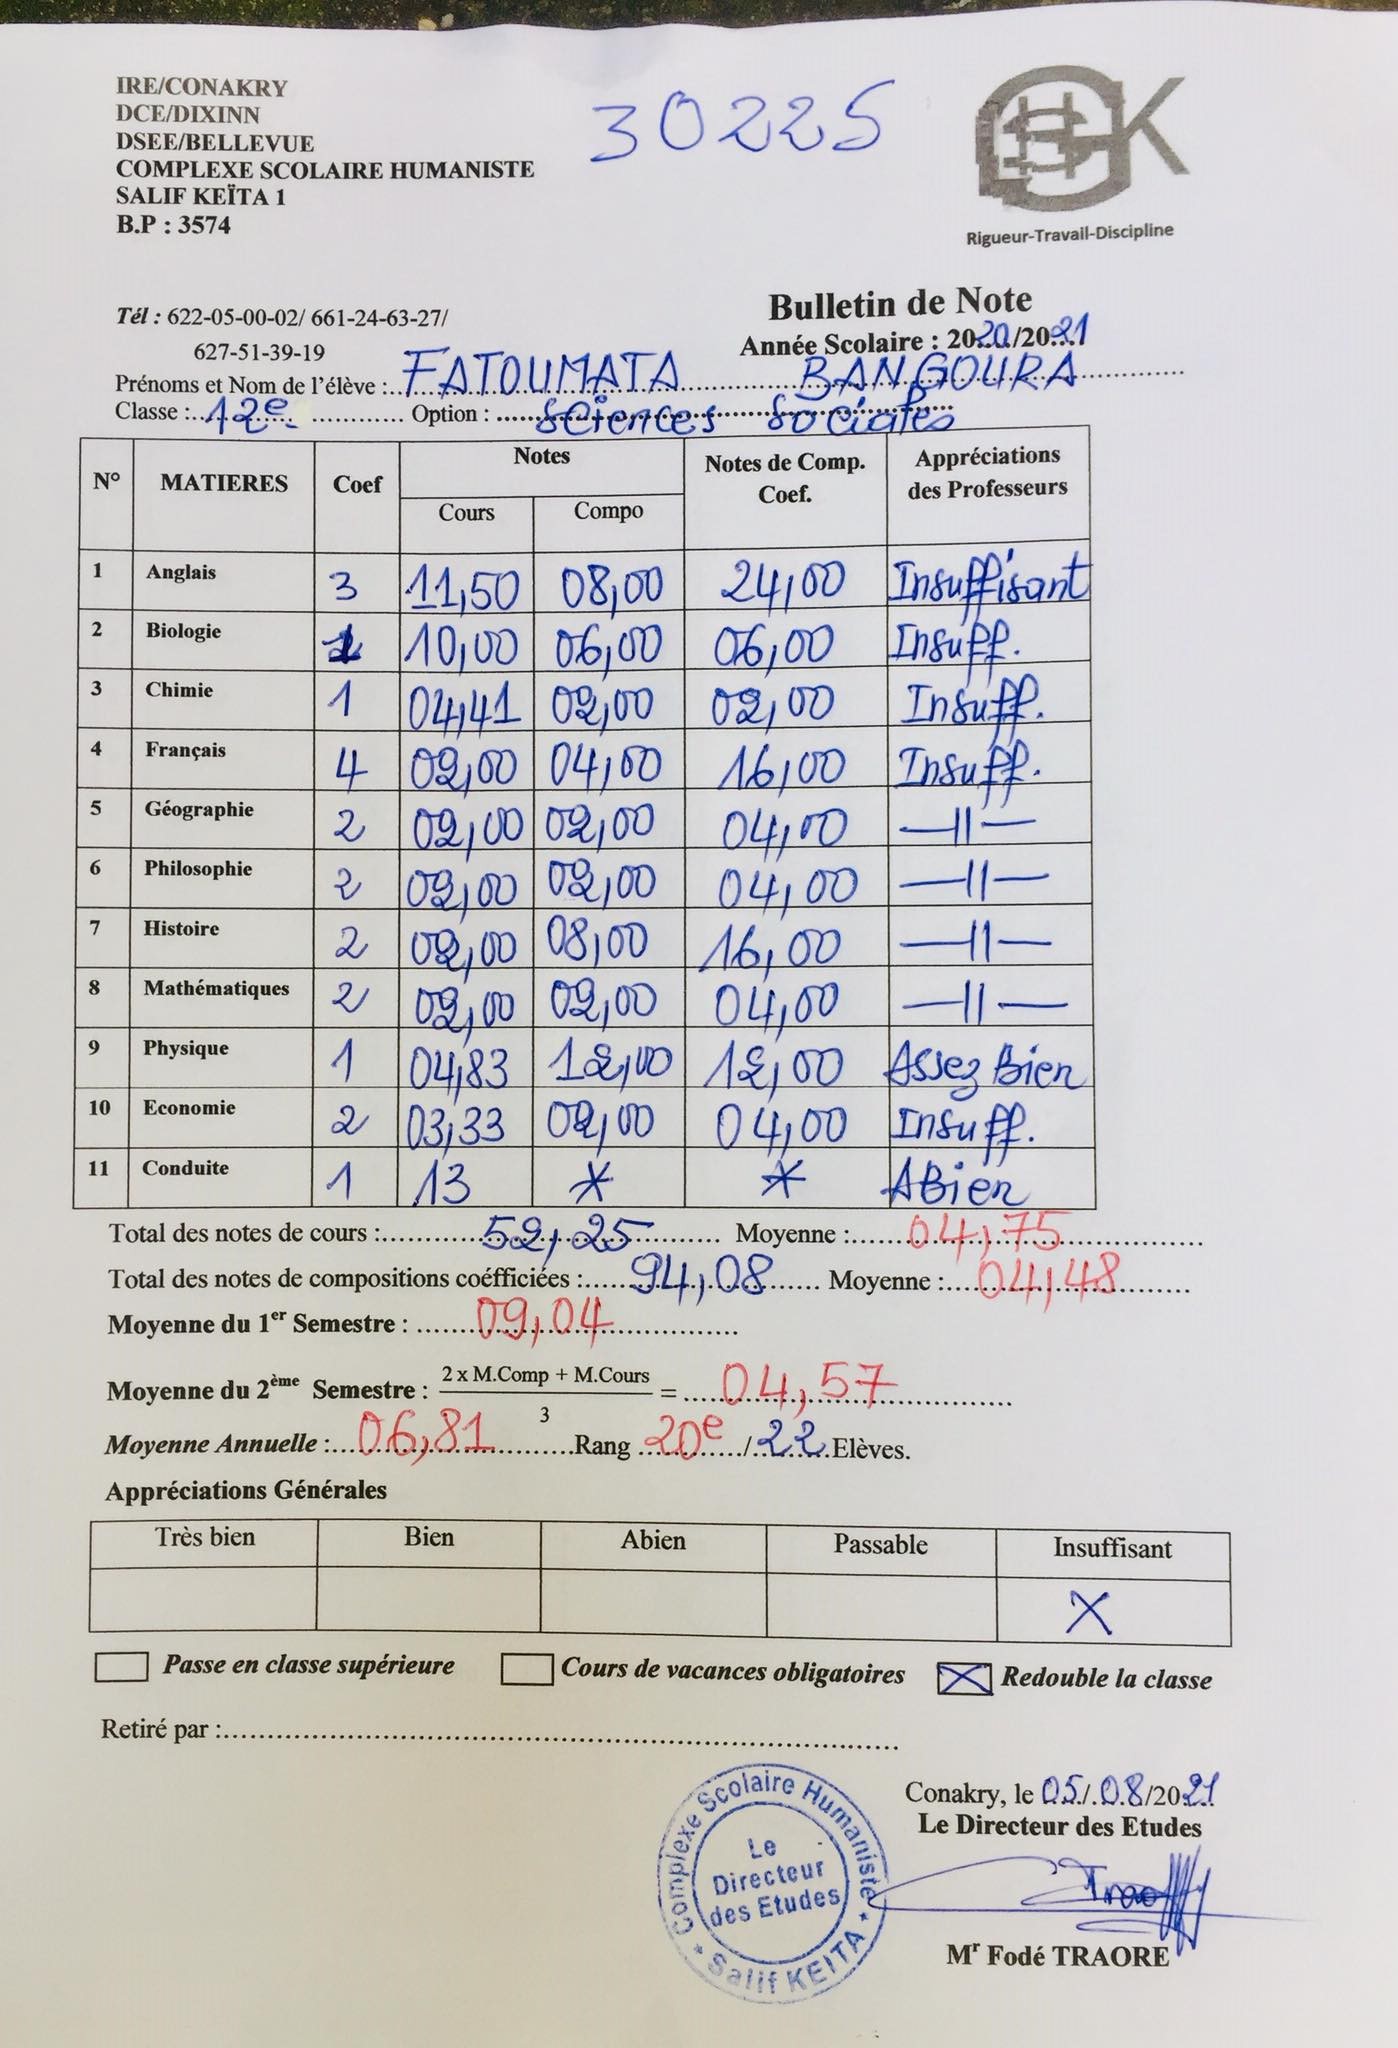 IRE/CONAKRY
DCE/DIXINN
DSEE/BELLEVUE
COMPLEXE SCOLAIRE HUMANISTE
SALIF KEÏTA 1
B.P : 3574
30225
Rigueur-Travail-Discipline
Tél : 622-05-00-02/ 661-24-63-27/
627-51-39-19
Bulletin de Note
Année Scolaire : 2020/2021
Prénoms et Nom de l'élève : FATOUMATA BANGOURA
Classe : 12e Option : Sciences Sociales
N° MATIERES Coef Notes Notes de Comp. Coef. Appréciations des Professeurs
Cours Compo
1 Anglais 3 11,50 08,00 24,00 Insuffisant
2 Biologie 1 10,00 06,00 06,00 Insuff.
3 Chimie 1 04,41 02,00 02,00 Insuff.
4 Français 4 02,00 04,00 16,00 Insuff.
5 Géographie 2 02,00 02,00 04,00 —||—
6 Philosophie 2 02,00 02,00 04,00 —||—
7 Histoire 2 02,00 08,00 16,00 —||—
8 Mathématiques 2 02,00 02,00 04,00 —||—
9 Physique 1 04,83 12,00 12,00 Assez Bien
10 Economie 2 03,33 02,00 04,00 Insuff.
11 Conduite 1 13 * * ABien
Total des notes de cours : 52,25 Moyenne : 04,75
Total des notes de compositions coéfficiées : 94,08 Moyenne : 04,48
Moyenne du 1er Semestre : 09,04
Moyenne du 2ème Semestre : 2 x M.Comp + M.Cours / 3 = 04,57
Moyenne Annuelle : 06,81 Rang 20e / 22 Elèves.
Appréciations Générales
Très bien Bien Abien Passable Insuffisant
X
Passe en classe supérieure Cours de vacances obligatoires X Redouble la classe
Retiré par :
Conakry, le 05/08/2021
Le Directeur des Etudes
Complexe Scolaire Humaniste
Le Directeur des Etudes
* Salif KEITA *
Traoré
Mr Fodé TRAORE